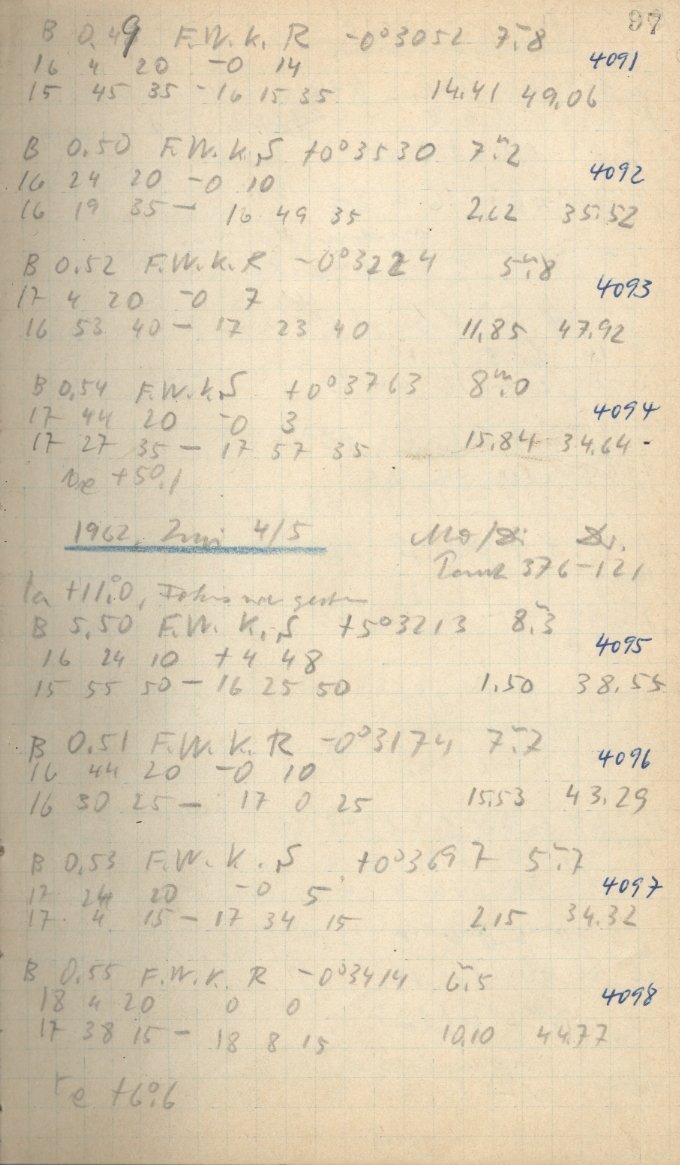 97
B 0.49 F.W.K. R -0°3052 7ᵐ.8
4091
16 4 20 -0 14
15 45 35 - 16 15 35 14.41 49.06
B 0.50 F.W.K. S +0°3530 7ᵐ.2
4092
16 24 20 -0 10
16 19 35 - 16 49 35 2.62 35.52
B 0.52 F.W.K. R -0°3224 5ᵐ.8
4093
17 4 20 -0 7
16 53 40 - 17 23 40 11.85 47.92
B 0.54 F.W.K. S +0°3763 8ᵐ.0
4094
17 44 20 -0 3
17 27 35 - 17 57 35 15.84 34.64
te +5°.1
1962, Juni 4/5
376-121
ta +11°.0, Fokus wie gestern
B 5.50 F.W.K. S +5°3213 8ᵐ.3
4095
16 24 10 +4 48
15 55 50 - 16 25 50 1.50 38.55
B 0.51 F.W.K. R -0°3174 7ᵐ.7
4096
16 44 20 -0 10
16 30 25 - 17 0 25 15.53 43.29
B 0.53 F.W.K. S +0°3697 5ᵐ.7
4097
17 24 20 -0 5
17 4 15 - 17 34 15 2.15 34.32
B 0.55 F.W.K. R -0°3414 6ᵐ.5
4098
18 4 20 0 0
17 38 15 - 18 8 15 10.10 44.77
te +6°.6